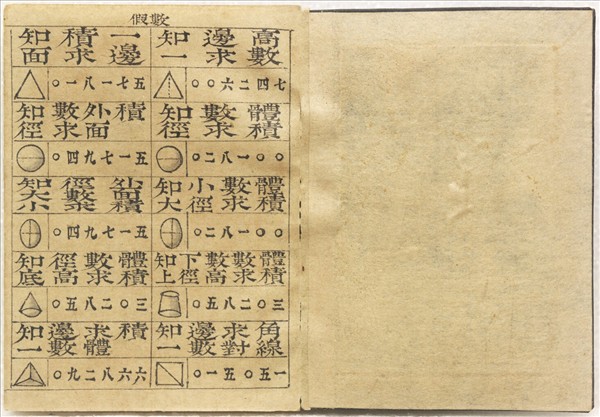 假數
知面積求一邊
〇一八一七五
知一邊求高數
〇〇六二四七
知徑數求外面積
〇四九七一五
知徑數求體積
〇二八一〇〇
知大小徑數求外面積
〇四九七一五
知大小徑數求體積
〇二八一〇〇
知底徑高數求體積
〇五八二〇三
知上下徑數高數求體積
〇五八二〇三
知一邊數求體積
〇九二八六六
知一邊數求對角線
〇一五〇五一